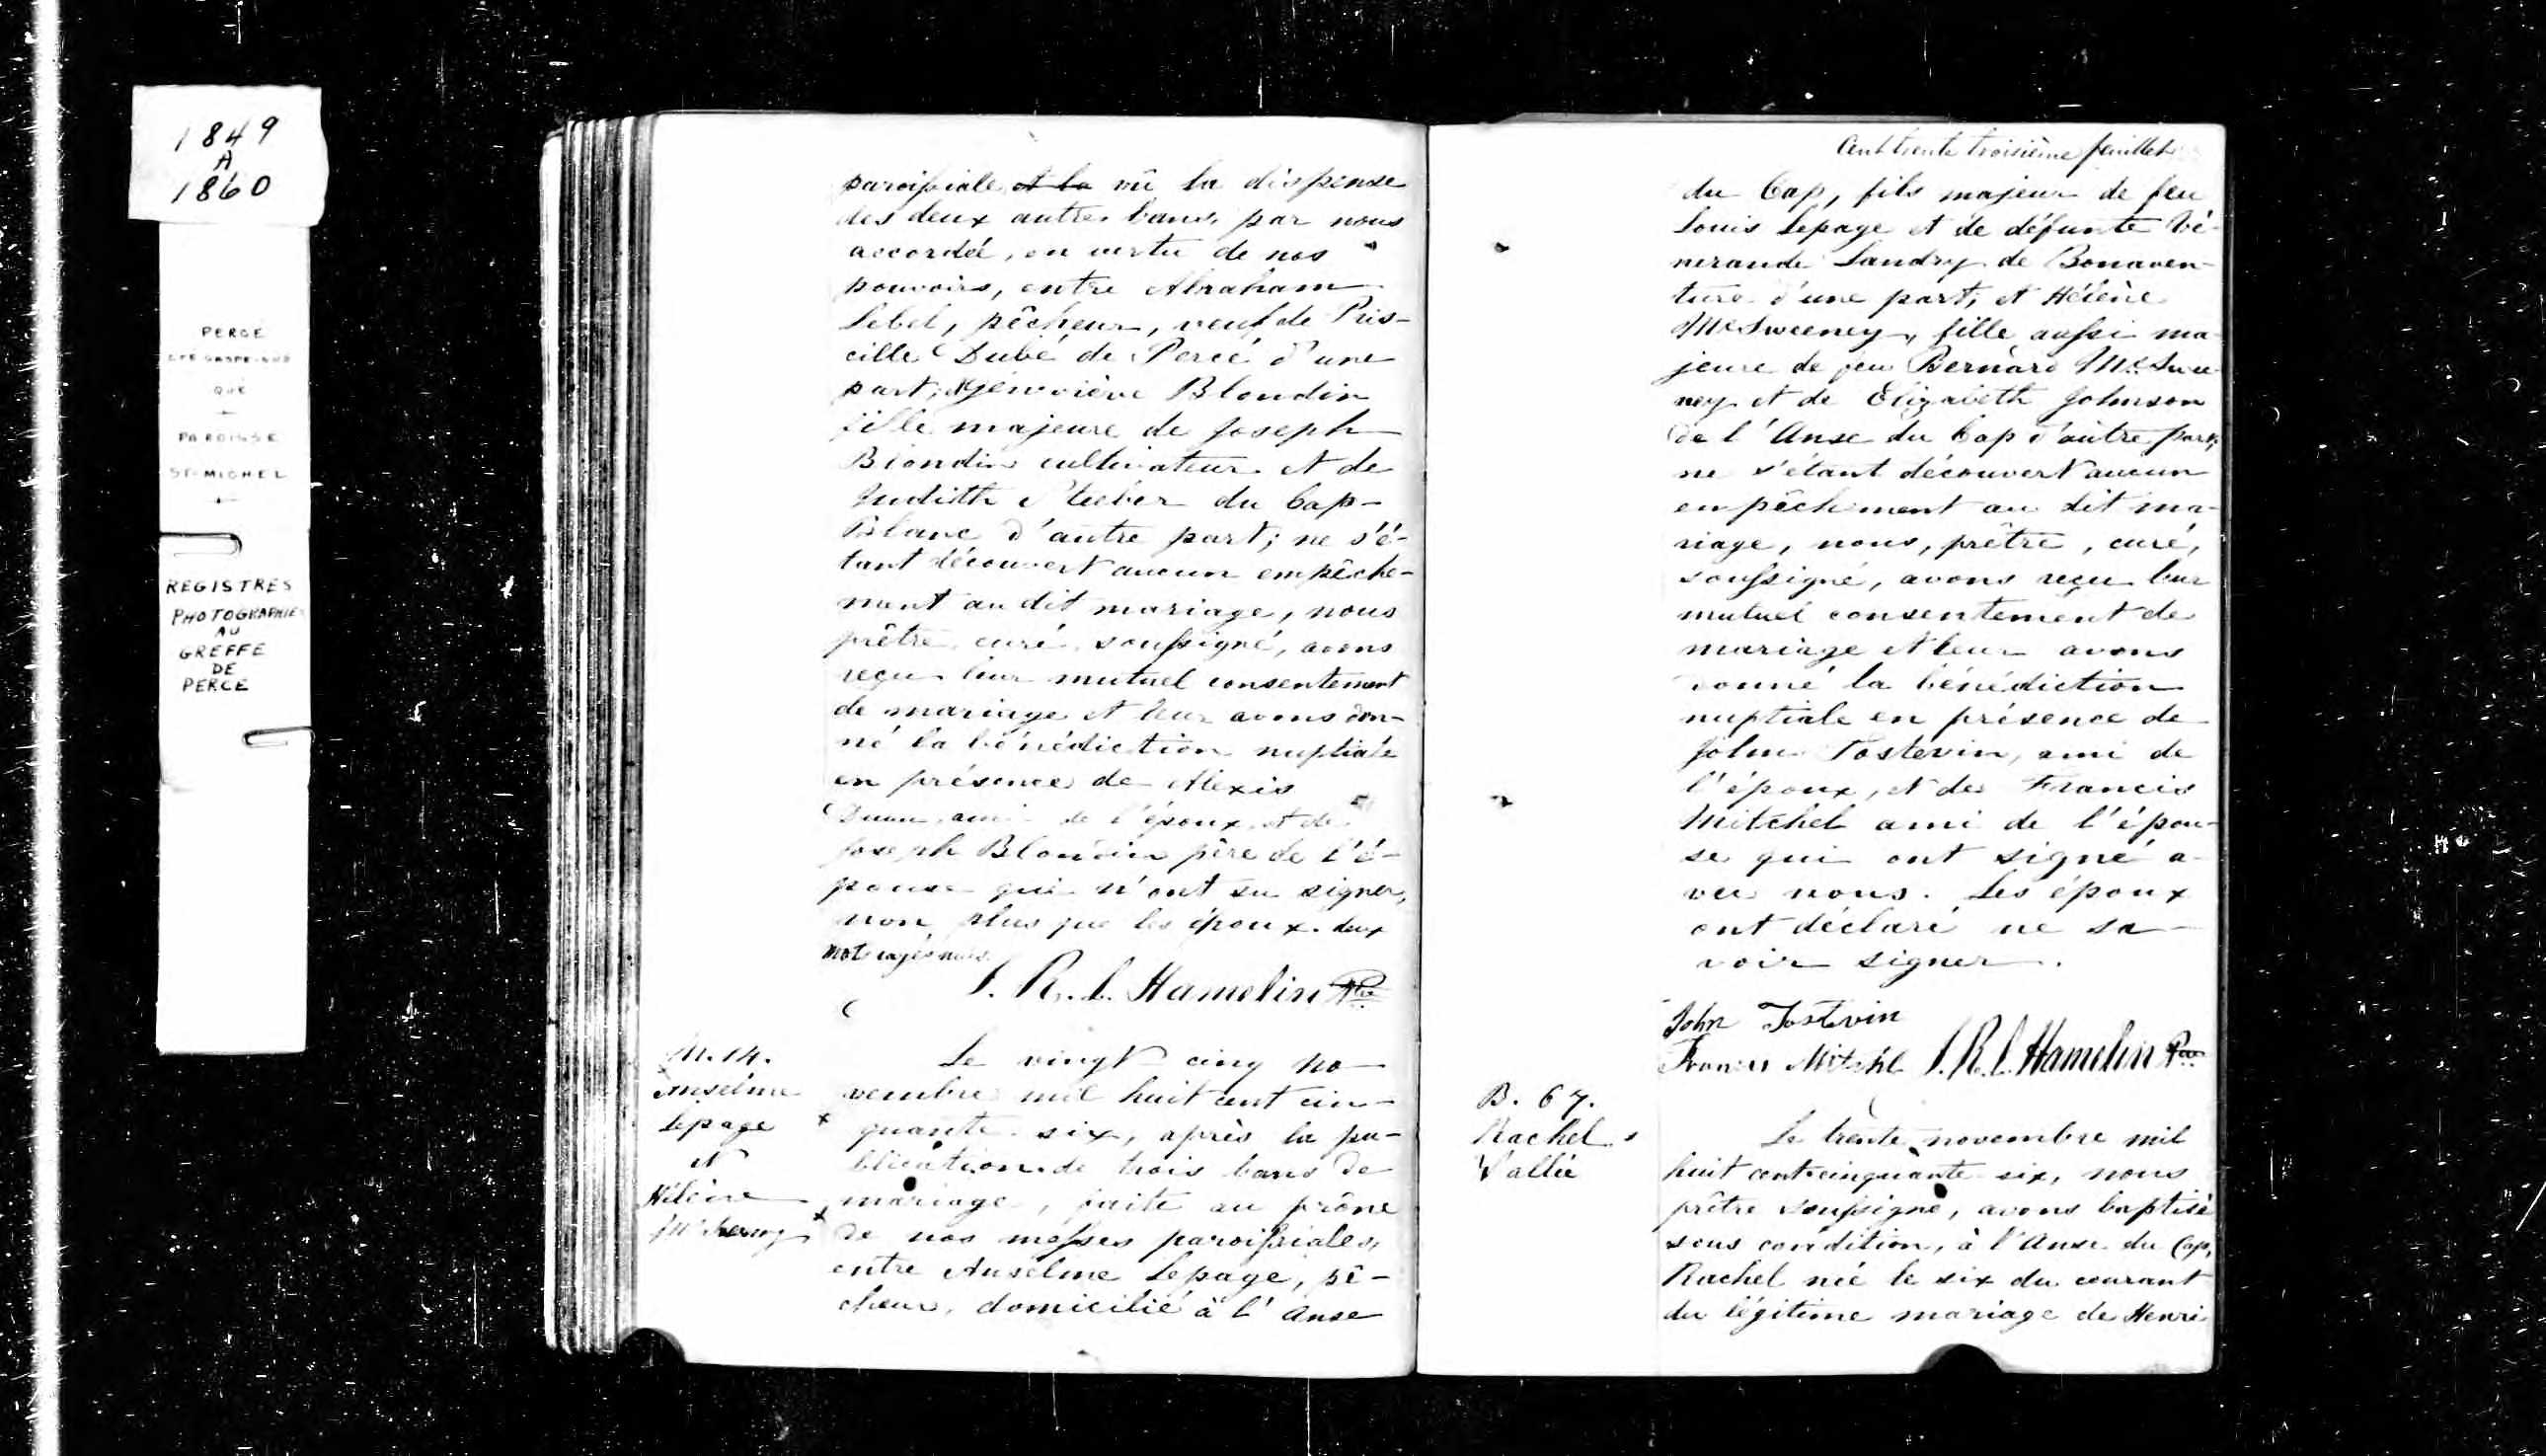 1849
A
1860
PERCÉ
CTÉ GASPÉ-SUD
QUÉ
PAROISSE
ST-MICHEL
REGISTRES
PHOTOGRAPHIÉS
AU
GREFFE
DE
PERCE
paroissiale et la vû la dispense
des deux autres bans, par nous
accordée, en vertu de nos
pouvoirs, entre Abraham
Lebel, pêcheur, veuf de Pris-
cille Dubé de Percé d'une
part; et Geneviève Blondin
fille majeure de Joseph
Blondin cultivateur et de
Judith du Cap-
Blanc d'autre part; ne s'é-
tant découvert aucun empêche-
ment au dit mariage, nous
prêtre curé soussigné, avons
reçu leur mutuel consentement
de mariage et leur avons don-
né la bénédiction nuptiale
en présence de Alexis
ami de l'époux et de
Joseph Blondin père de l'é-
pouse qui n'ont su signer,
non plus que les époux. deux
mots rayés nuls.
J. R. L. Hamelin Ptre
M. 14.
Anselme
Lepage
et
Hélène
Le vingt cinq no-
vembre mil huit cent cin-
quante six, après la pu-
blication de trois bans de
mariage, faite au prône
de nos messes paroissiales,
entre Anselme Lepage, pê-
cheur, domicilié à l'Anse
Cent trente troisième feuillet
du Cap, fils majeur de feu
Louis Lepage et de défunte Vé-
nerande Landry de Bonaven-
ture d'une part; et Hélène
McSweeney, fille aussi ma-
jeure de feu Bernard McSwee-
ney et de Elizabeth Johnson
de l'Anse du Cap d'autre part;
ne s'étant découvert aucun
empêchement au dit ma-
riage, nous, prêtre, curé,
soussigné, avons reçu leur
mutuel consentement de
mariage et leur avons
donné la bénédiction
nuptiale en présence de
John Tostevin, ami de
l'époux, et de Francis
Mitchel ami de l'épou-
se qui ont signé a-
vec nous. Les époux
ont déclaré ne sa-
voir signer.
John Tostevin
Francis Mitchl J. R. L. Hamelin Ptre
B. 67.
Rachel
Vallée
Le trente novembre mil
huit cent cinquante six, nous
prêtre soussigné, avons baptisé
sous condition, à l'Anse du Cap,
Rachel née le six du courant
du légitime mariage de Henri